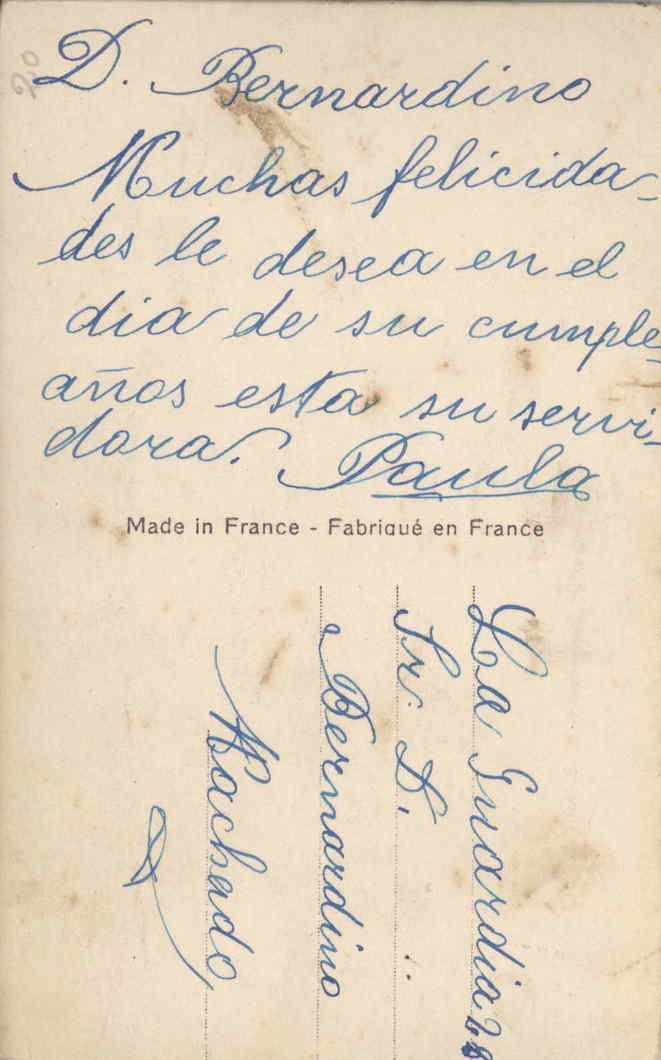 20
D. Bernardino
Muchas felicida-
des le desea en el
dia de su cumple-
años esta su servi-
dora. Paula
Made in France - Fabriqué en France
La Guardia 28
Sr. D.
Bernardino
Machado